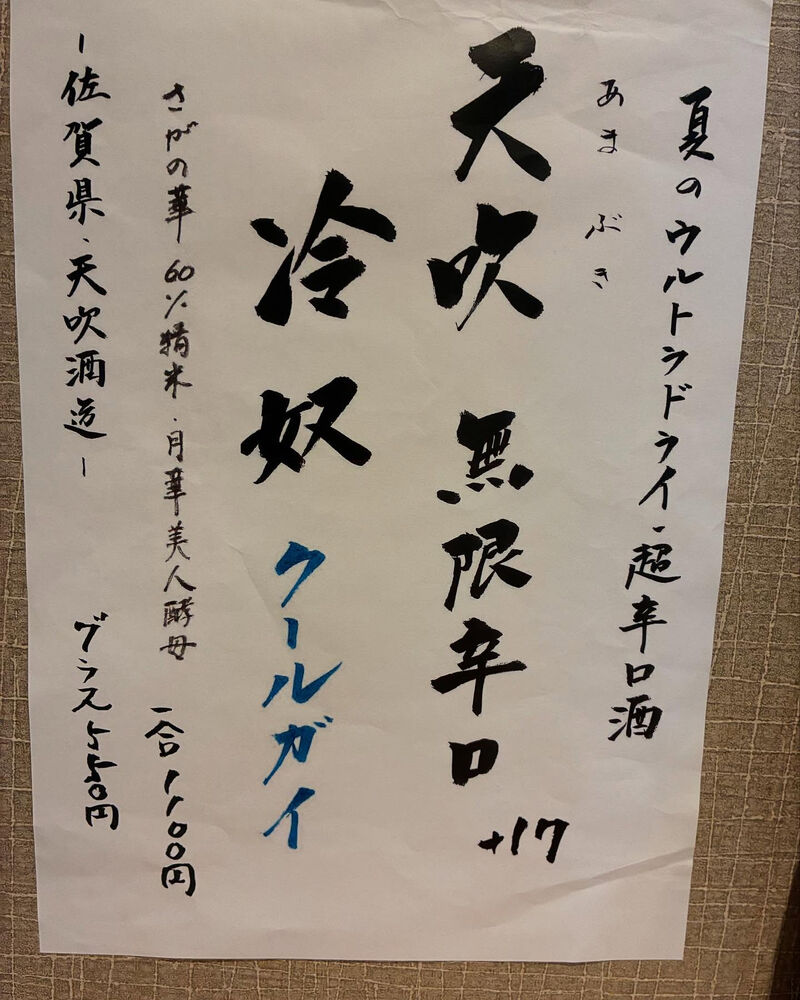 夏のウルトラドライ・超辛口酒
あまぶき
天吹 無限辛口 +17
冷奴 クールガイ
さがの華 60%精米・月華美人酵母
一合1100円
-佐賀県・天吹酒造-
グラス550円